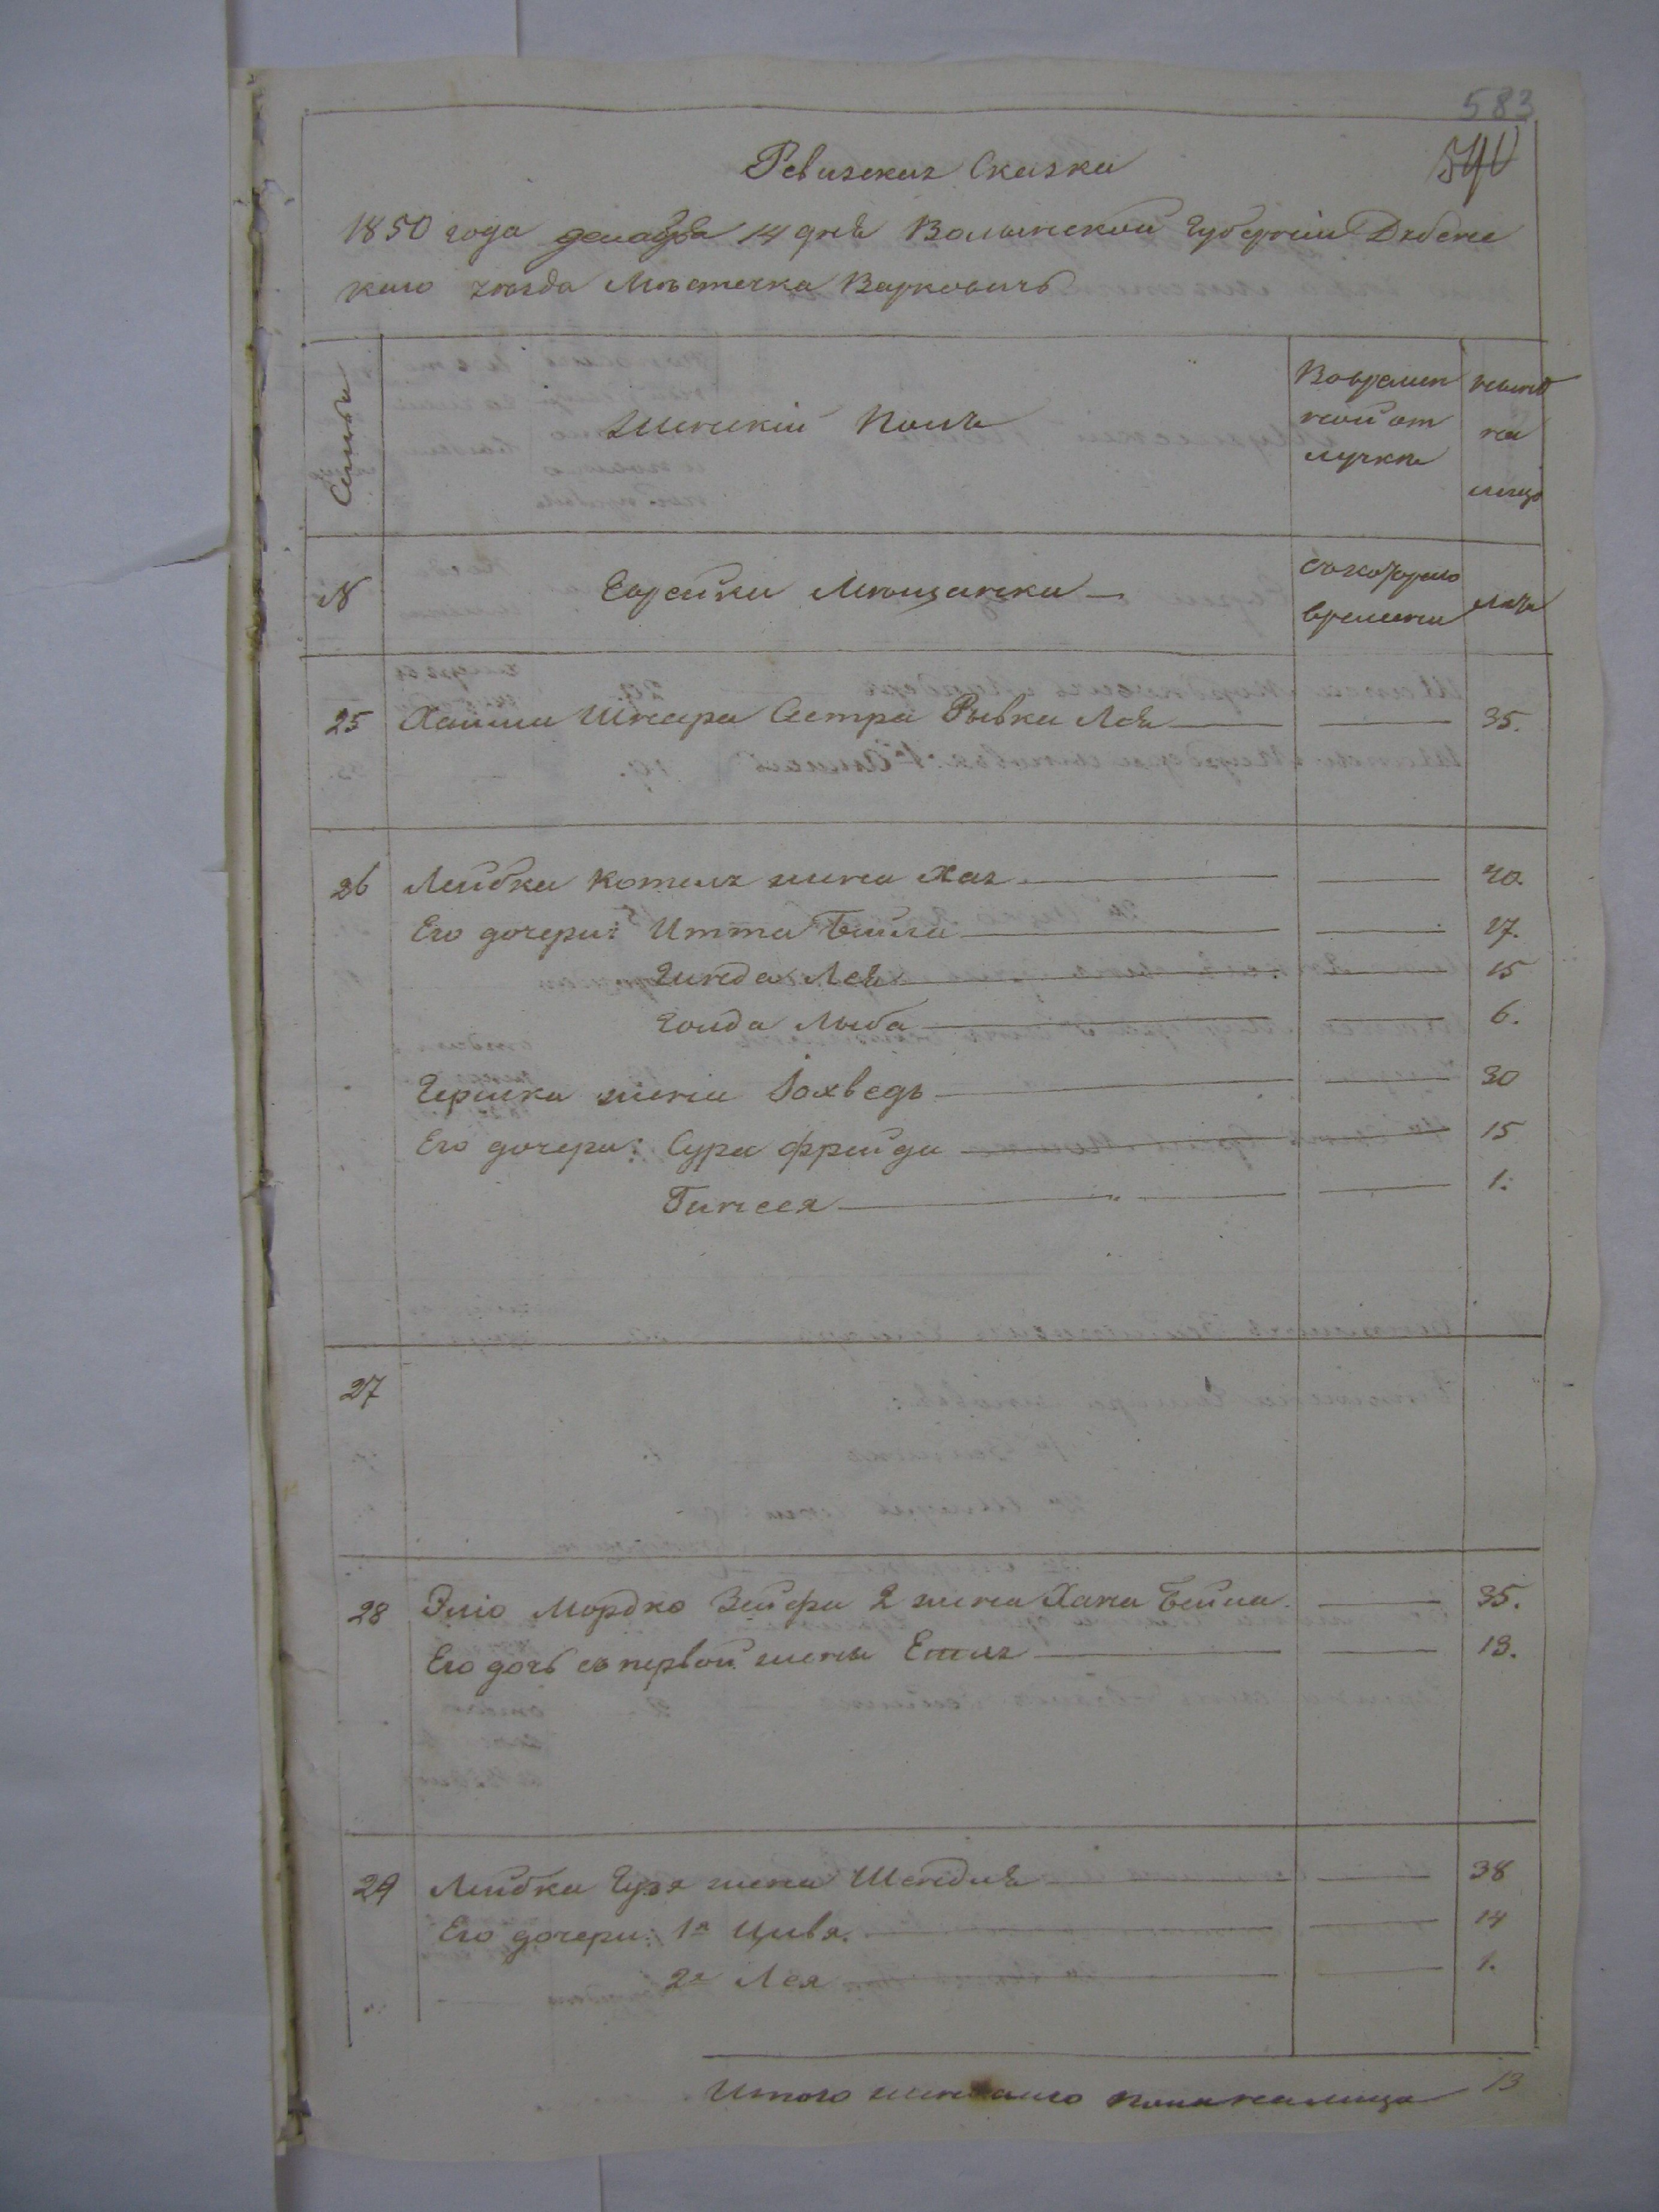 583
590
Ревизская Сказка
1850 года декабря 14 дня Волынской Губерніи Дубенс
каго уезда Местечка Варковичъ
Семьи
Женскій Полъ
Во времен
ной от
лучке
ныне
на
лицо
N
Еврейки Мещанки
Съ котораго
времени
Лета
25 Хаима Шнеера Сестра Рывка Лея 35.
26 Лейбка Котеля жена Хая 40.
Его дочери: Итта Бейла 17.
Гинда Лея 15
Голда Лыба 6.
Гершка жена Іохведъ 30
Его дочери: Сура Фрейда 15
Гинеся 1.
27
28 Эліо Мордко Зейфа 2 жена Хана Бейла 35.
Его дочь съ первой жены Етля 13.
29 Лейбка Гузя жена Шендля 38
Его дочери: 1я Цивя. 14
2я Лея 1.
Итого женскаго пола налицо 13